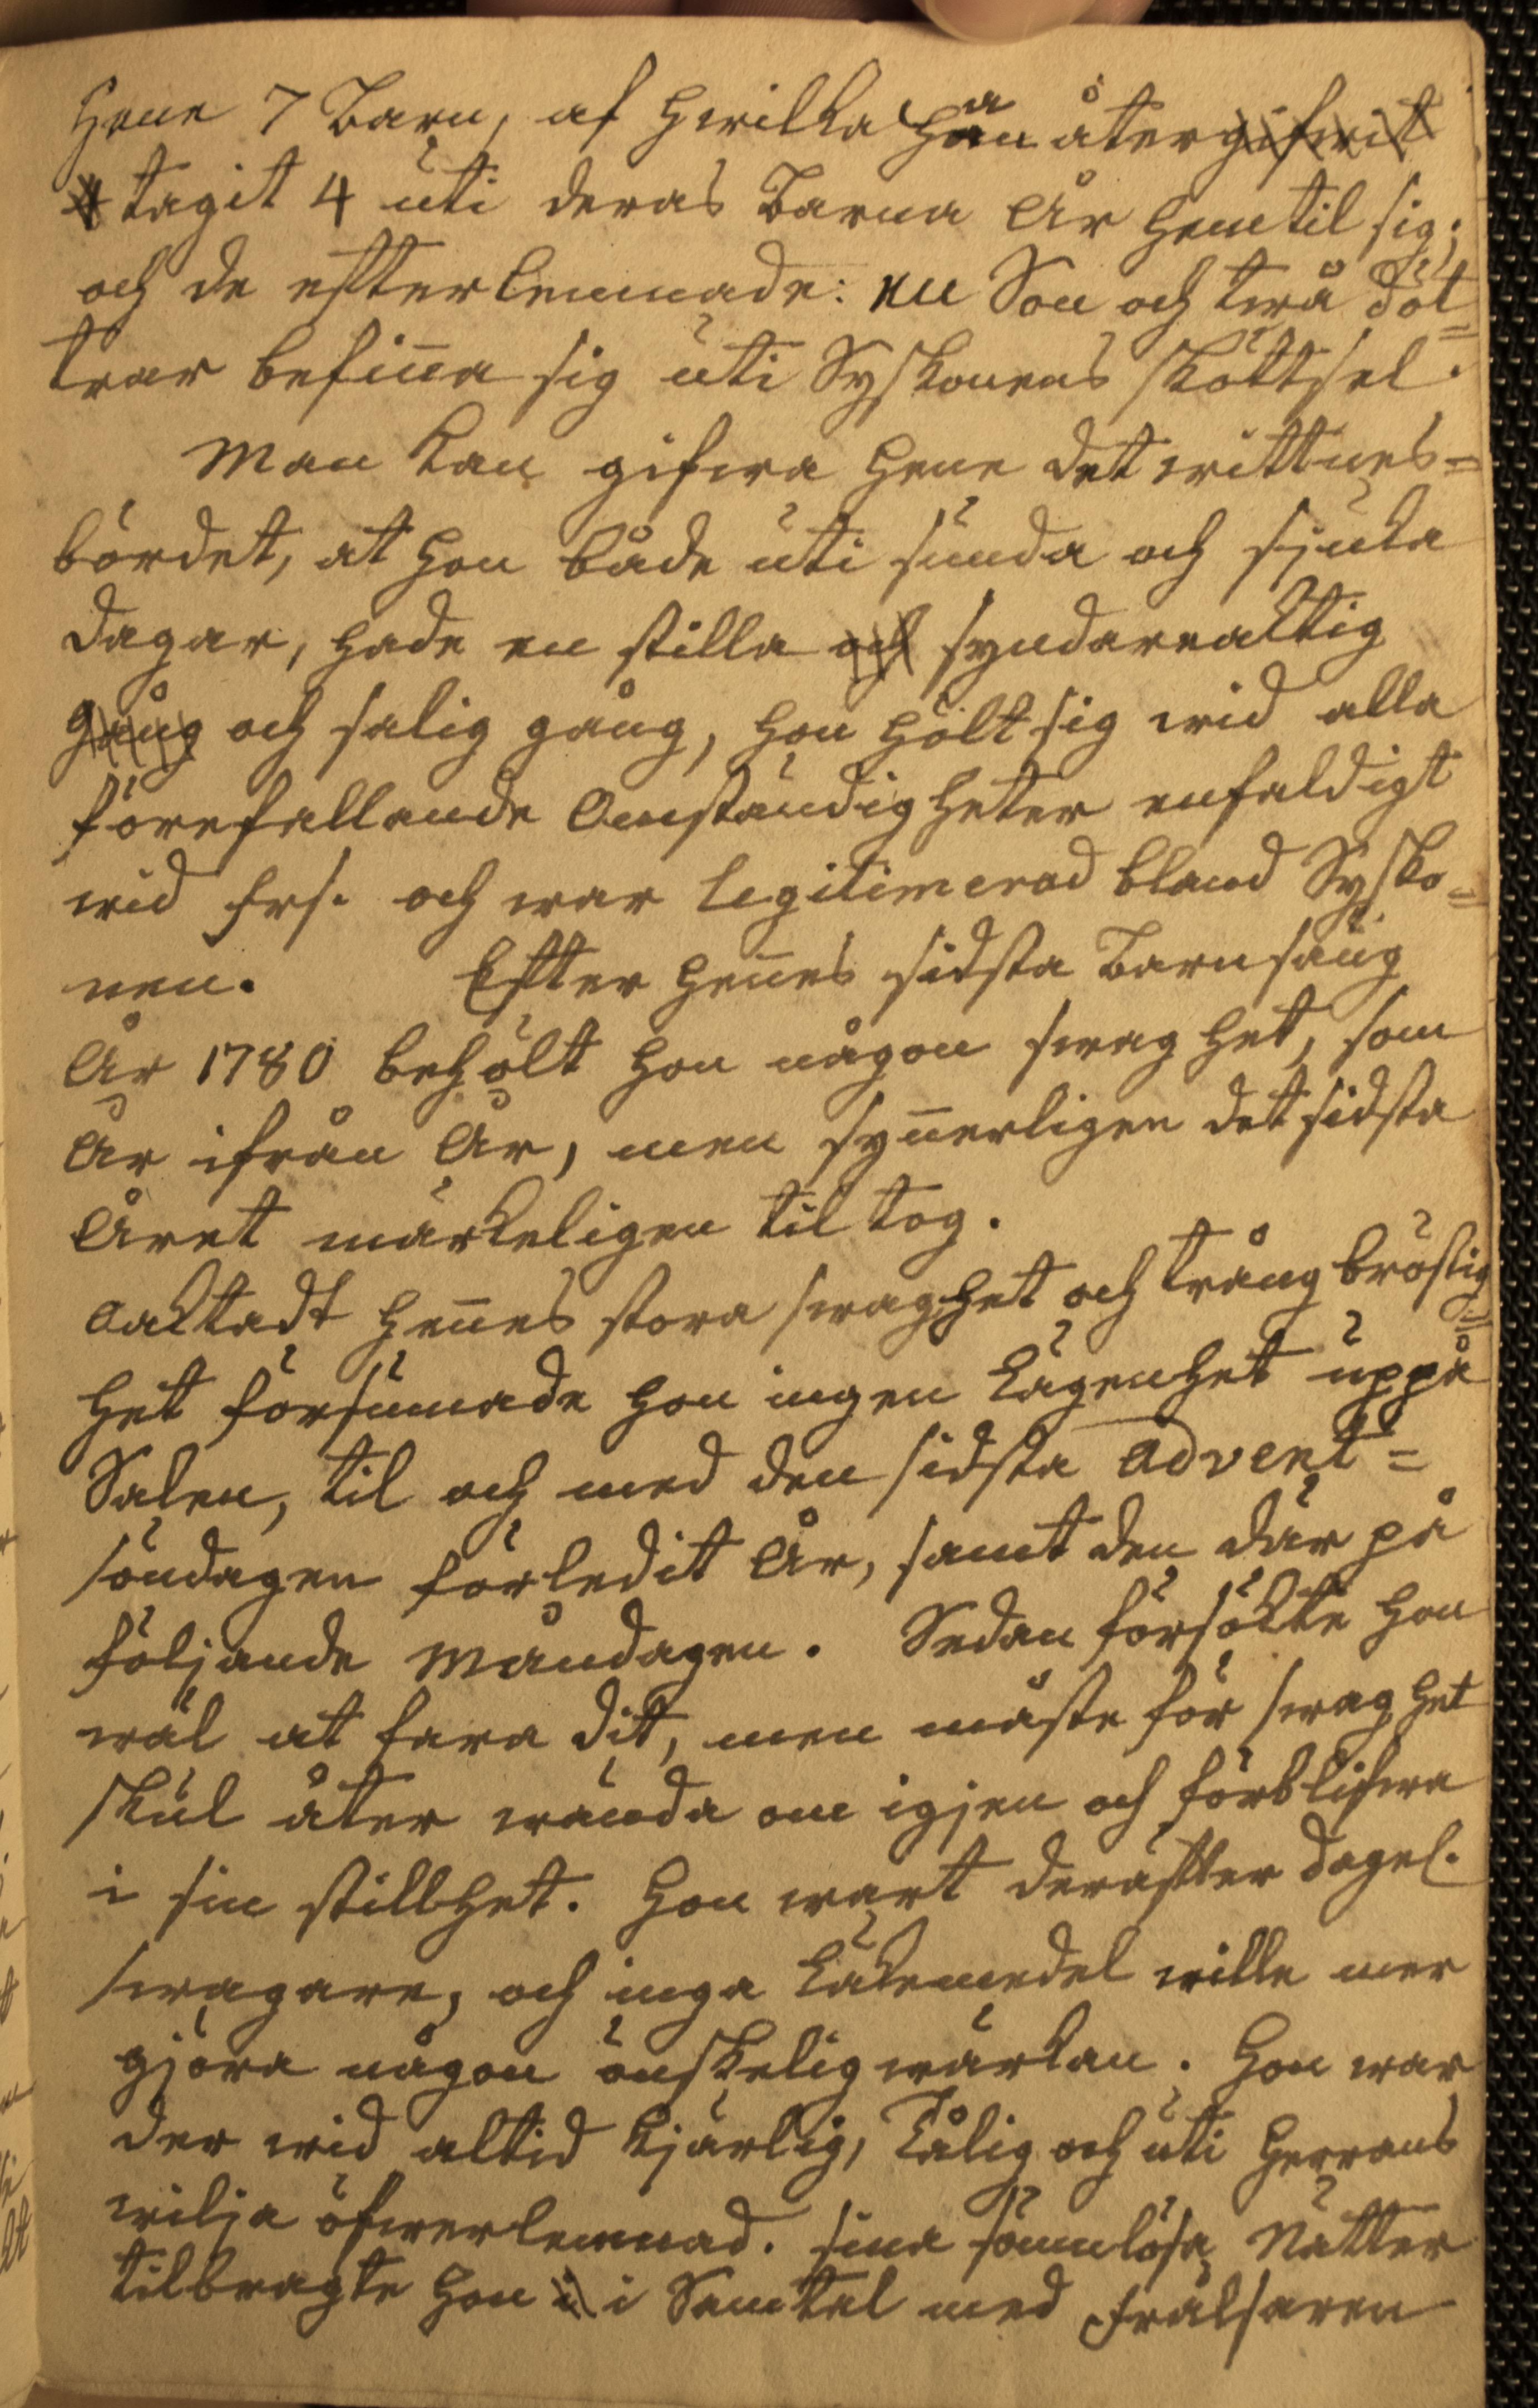 Hene 7 Barn, af hwilka han återgifwit
tagit 4 uti deras Barna År hem til sig;
och de efterlemnade: en Son och twå döt=
trar befin̄a sig uti Syskonens sköttsel.
Man kan gifwa Hene det wittnes=
bördet, at hon både uti sunda och sjuka
dagar, hade en stilla och syndareaktig
gång och salig gång, hon hölt sig wid alla
förefallande Omständigheter enfaldigt
wid frs. och war legitimerad bland Sysko=
nen. Efter Hen̄es sidsta Barnsäng
År 1780 behölt hon någon swaghet, som
År ifrån År, men syn̄erligen det sidsta
Året märkeligen til tog.
oaktadt Hen̄es stora swaghet och trångbröstig=
het försummade hon ingen Lägenhet uppå
Salen, til och med den sidsta Advent=
söndagen förledit År, samt den där på
följande Måndagen. Sedan försökte hon
wäl at fara dit, men måste för swaghet
skul åter wända om igjen och förblifwa
i sin stillhet. Hon wart derafter dagel.
swagare, och inga Läkemedel wille mer
gjöra någon önskelig wärkan. Hon war
der wid altid kjärlig, Tålig och uti Herrans
wilja öfwerlemnad. sina sömnlösa Nätter
tilbragte hon i i Samtal med Frälsaren